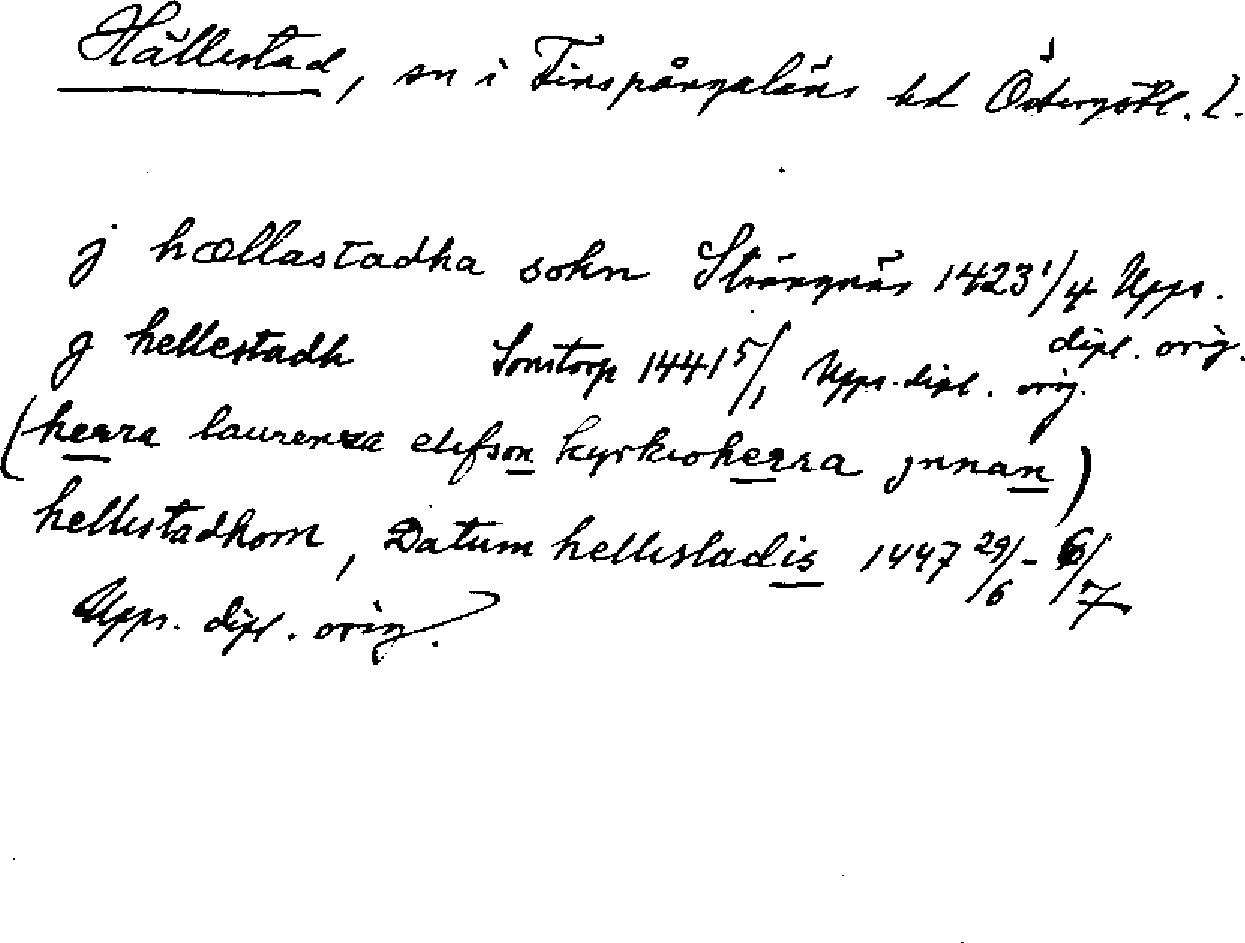 Hällestad, sn i Finspångaläns hd Östergötl. l.
j hællastadha sokn Strängnäs 1423 1/4 Upps.
dipl. orig.
j hellestadh Sonstorp 1441 5/1 Upps. dipl. orig.
(herra laurenza elefson kyrkioherra jnnan)
hellestadhom, Datum hellestadis 1447 29/6 - 6/7
Upps. dipl. orig.